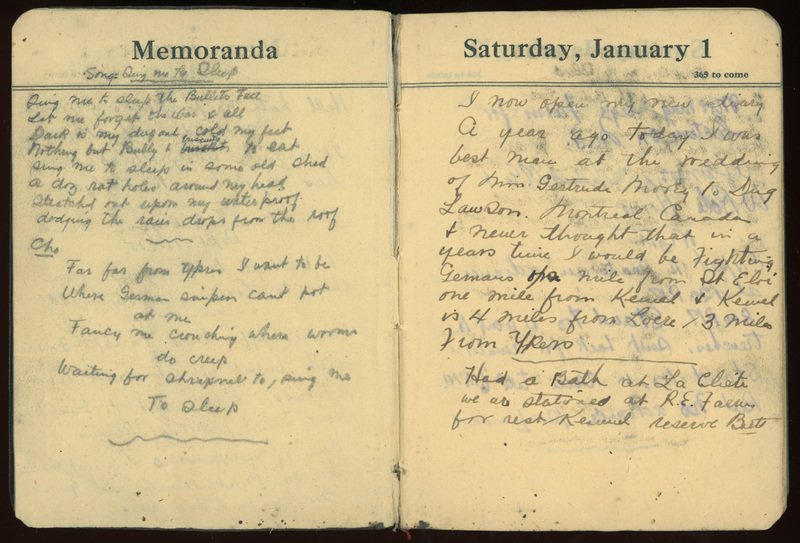 Memoranda
Song: Sing me to Sleep
Sing me to sleep the Bullets Fall
Let me forget the War & all
Dark is my dugout cold my feet
Nothing but Bully & biscuits to eat
Sing me to sleep in some old shed
a doz rat holes around my head
Stretched out upon my waterproof
dodging the rain drops from the roof
Cho
Far far from Ypres I want to be
Where German snipers cant pot
at me
Fancy me crouching where worms
do creep
Waiting for shrapnel to, sing me
To sleep
Saturday, January 1
365 to come
I now open my new diary
A year ago today I was
best man at the wedding
of Miss Gertrude to
Lawson. Montreal Canada
& never thought that in a
years time I would be Fighting
Germans mile from St Eloi
one mile from Kemmel & Kemmel
is 4 miles from Locre / 3 miles
From Ypers
Had a Bath at La
we are stationed at R.E. Farm
for rest Kemmel reserve Batt